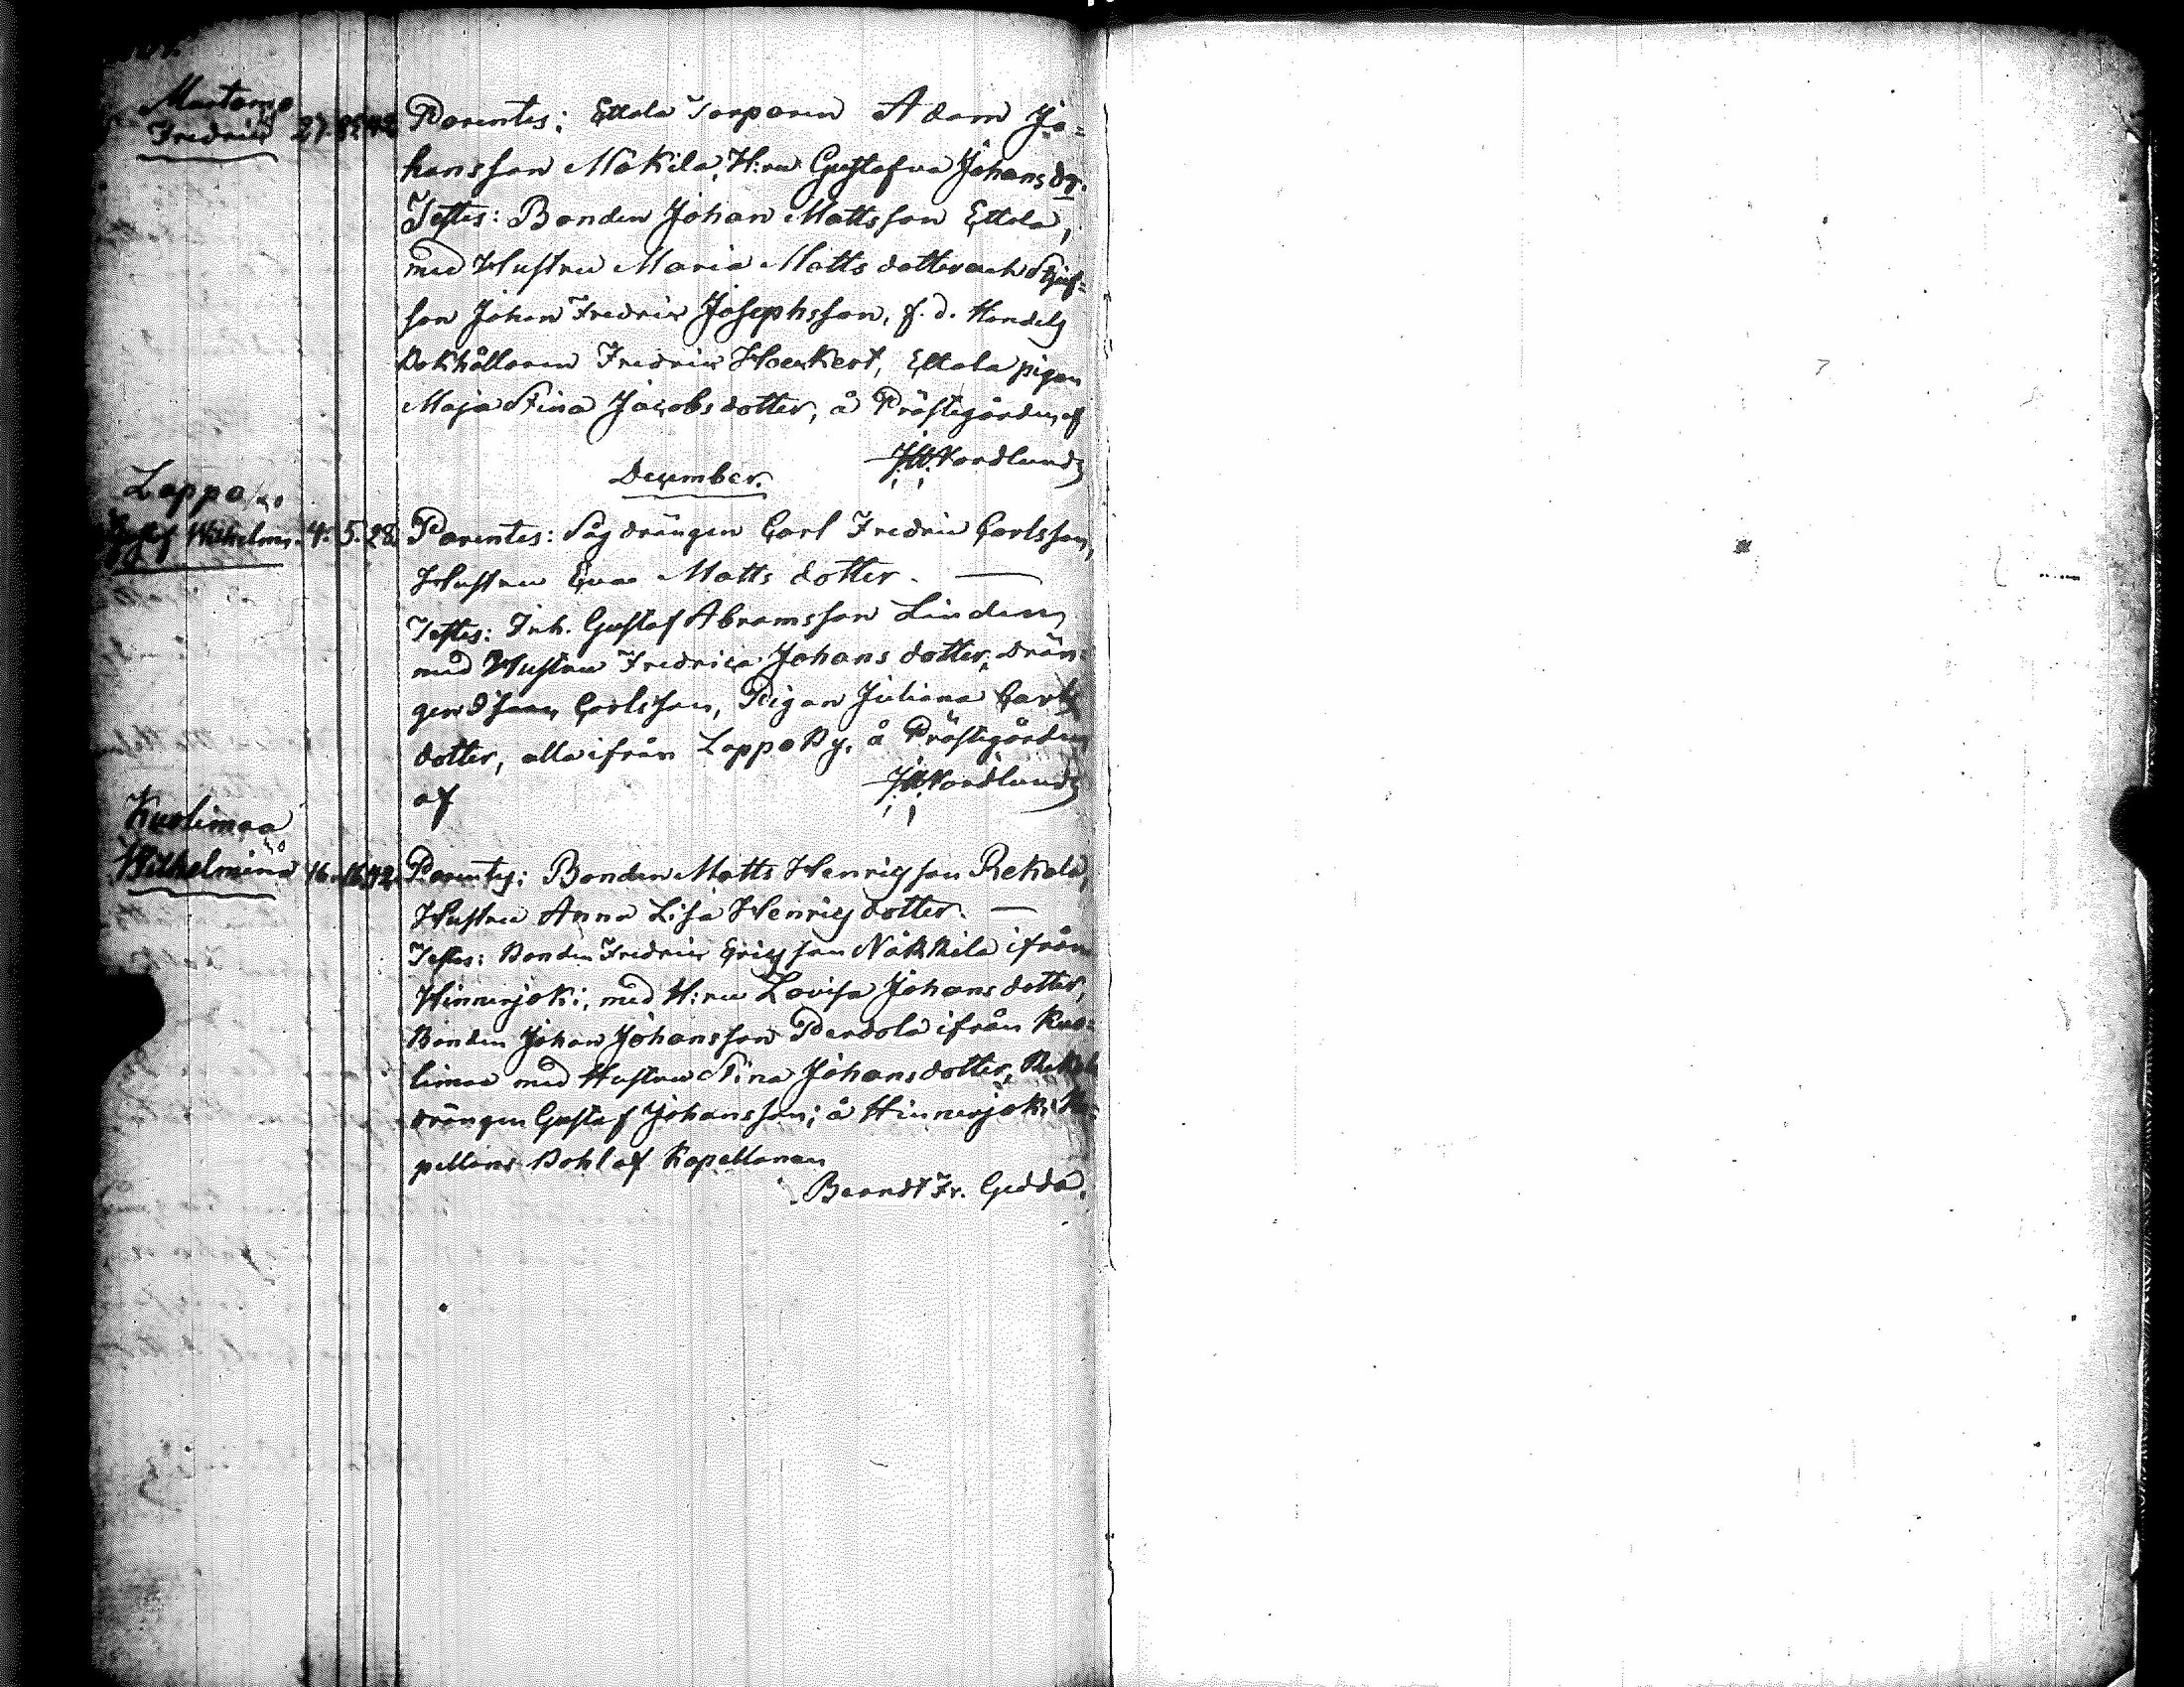 Martans
Fredric 27. 28. 42.
Parentes: Ettala Torparen Adam Jo=
hansson Mäkilä, H:ru Gustafva Johansdr.
Testes: Bonden Johan Mattsson Ettala,
med Hustru Maria Mattsdotter och Styf=
son Johan Fredric Josephsson, f. d. Handels
Bokhållaren Fredric Hoeckert, Ettala pigan
Maja Stina Jacobsdotter, å Prästegården af
Nordlund
December.
Lappo
Josef Wilhelm. 4. 5. 28.
Parentes: Sågdrängen Carl Fredric Carlsson,
Hustru Eva Mattsdotter. —
Testes: Inh. Gustaf Abramsson Linden
med Hustru Fredrica Johansdotter, Drän=
gen Carlsson, Pigan Juliana Carls
dotter, alla ifrån Lappo By, å Prästegården
af
Nordlund
Kuolimaa
Wilhelmina 16. 16. 42.
Parentes: Bonden Matts Henricsson Rekola,
Hustru Anna Lisa Henricsdotter. —
Testes: Bonden Fredric Ericsson Näkkilä ifrån
Hinnerjoki, med H:ru Lovisa Johansdotter,
Bonden Johan Johansson Perdola ifrån Kuo=
limaa med Hustru Stina Johansdotter, Rekola
drängen Gustaf Johansson; å Hinnerjoki Ka=
pellans Bohl af Kapellanen
Berndt Fr. Gedda.